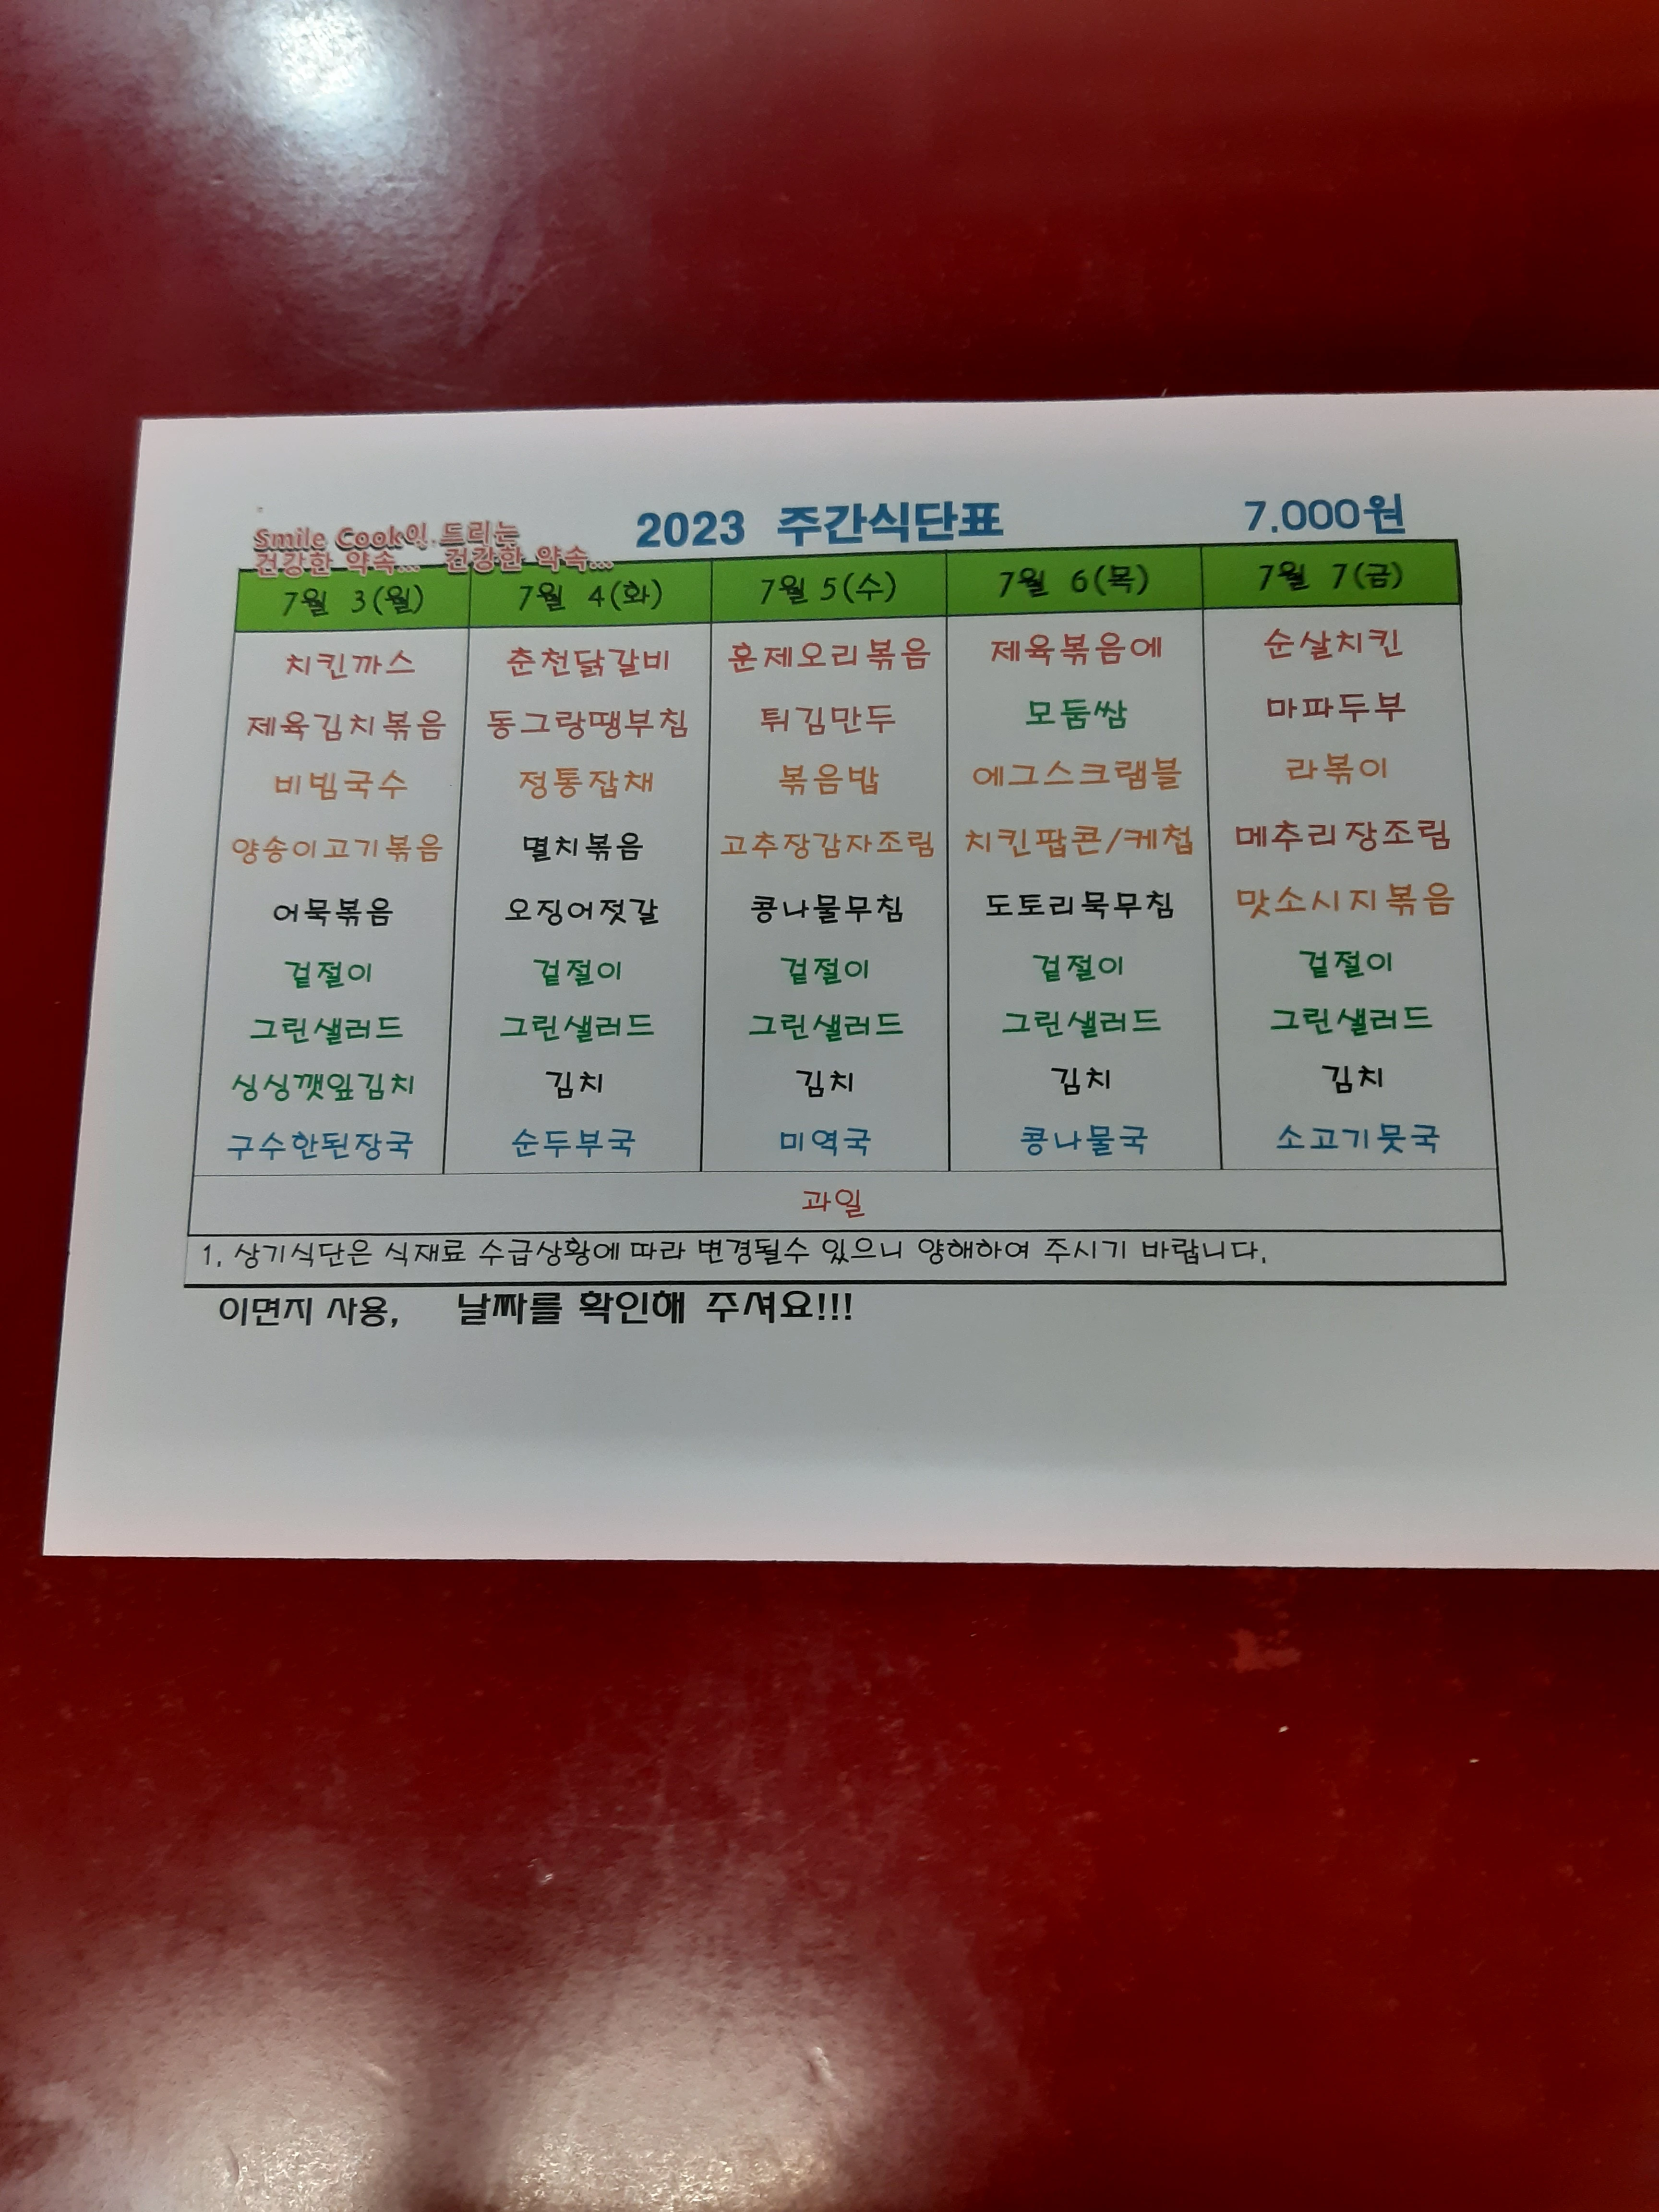 Smile Cook이 드리는
건강한 약속... 건강한 약속...
2023 주간식단표
7.000원
7월 3(월) 7월 4(화) 7월 5(수) 7월 6(목) 7월 7(금)
치킨까스 춘천닭갈비 훈제오리볶음 제육볶음에 순살치킨
제육김치볶음 동그랑땡부침 튀김만두 모둠쌈 마파두부
비빔국수 정통잡채 볶음밥 에그스크램블 라볶이
양송이고기볶음 멸치볶음 고추장감자조림 치킨팝콘/케첩 메추리장조림
어묵볶음 오징어젓갈 콩나물무침 도토리묵무침 맛소시지볶음
겉절이 겉절이 겉절이 겉절이 겉절이
그린샐러드 그린샐러드 그린샐러드 그린샐러드 그린샐러드
싱싱깻잎김치 김치 김치 김치 김치
구수한된장국 순두부국 미역국 콩나물국 소고기뭇국
과일
1, 상기식단은 식재료 수급상황에 따라 변경될수 있으니 양해하여 주시기 바랍니다.
이면지 사용, 날짜를 확인해 주셔요!!!